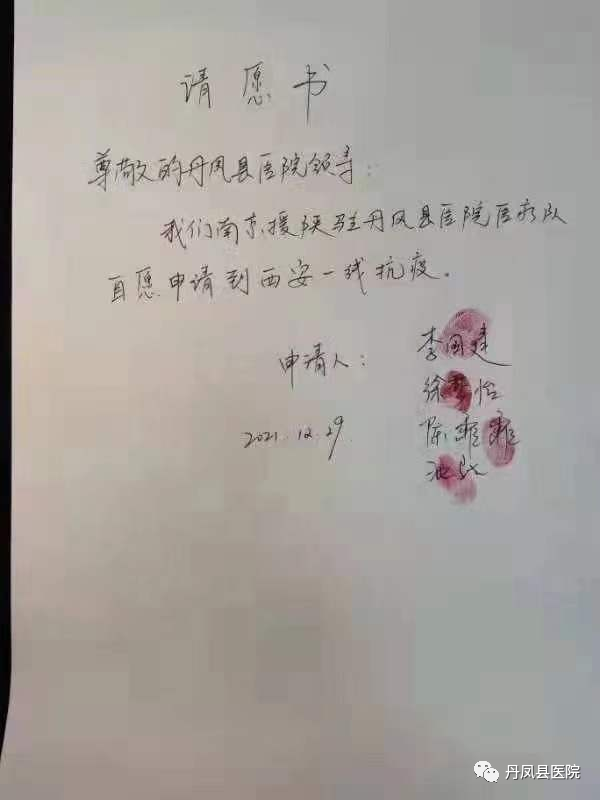 请愿书
尊敬的丹凤县医院领导：
我们南京援陕驻丹凤县医院医疗队
自愿申请到西安一线抗疫。
申请人：李国建
徐梦怡
2021.12.29 陈雅雅
池
丹凤县医院